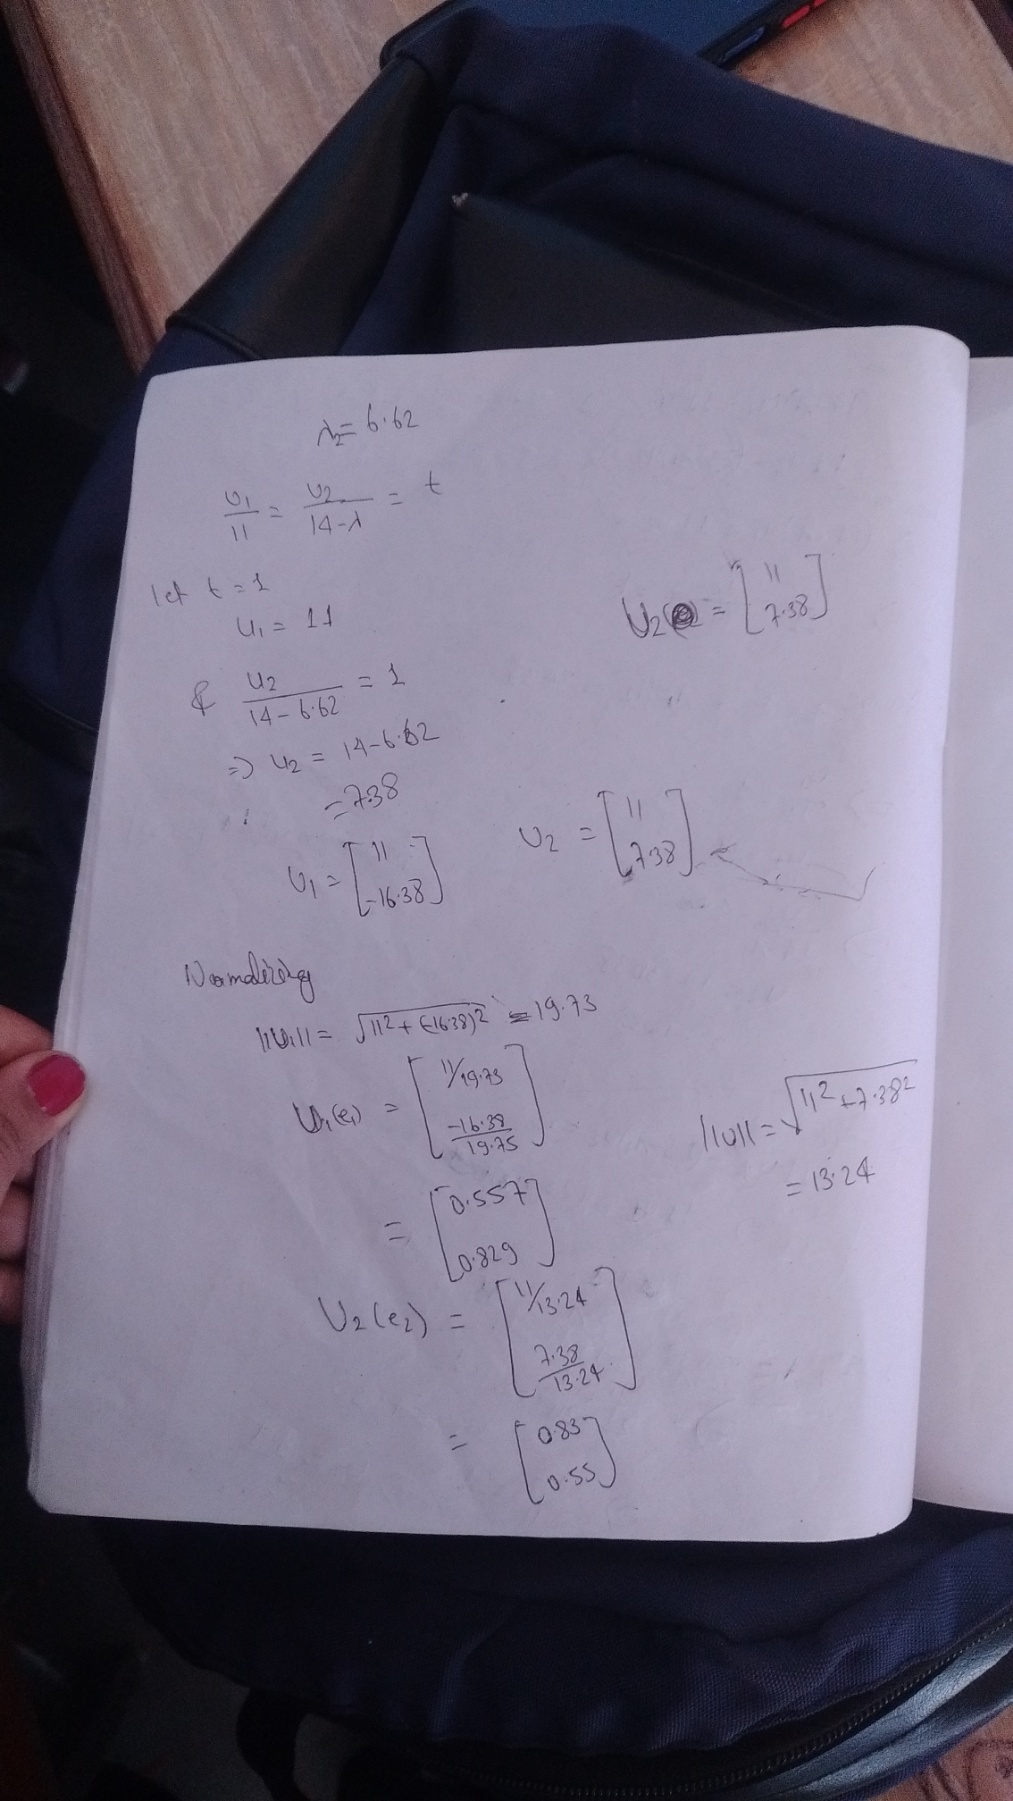 λ₂ = 6.62
U₁/11 = U₂/14-λ = t
let t = 1
U₁ = 11
U₂ = [11 7.38]
& U₂/14-6.62 = 1
=> U₂ = 14-6.62
= 7.38
U₁ = [11 -16.38]
U₂ = [11 7.38]
Normalizing
||U₁|| = √11² + (-16.38)² = 19.73
U₁(e₁) = [11/19.73 -16.38/19.75]
||U|| = √11² + 7.38²
= 13.24
= [0.557 0.829]
U₂(e₂) = [11/13.24 7.38/13.24]
= [0.83 0.55]